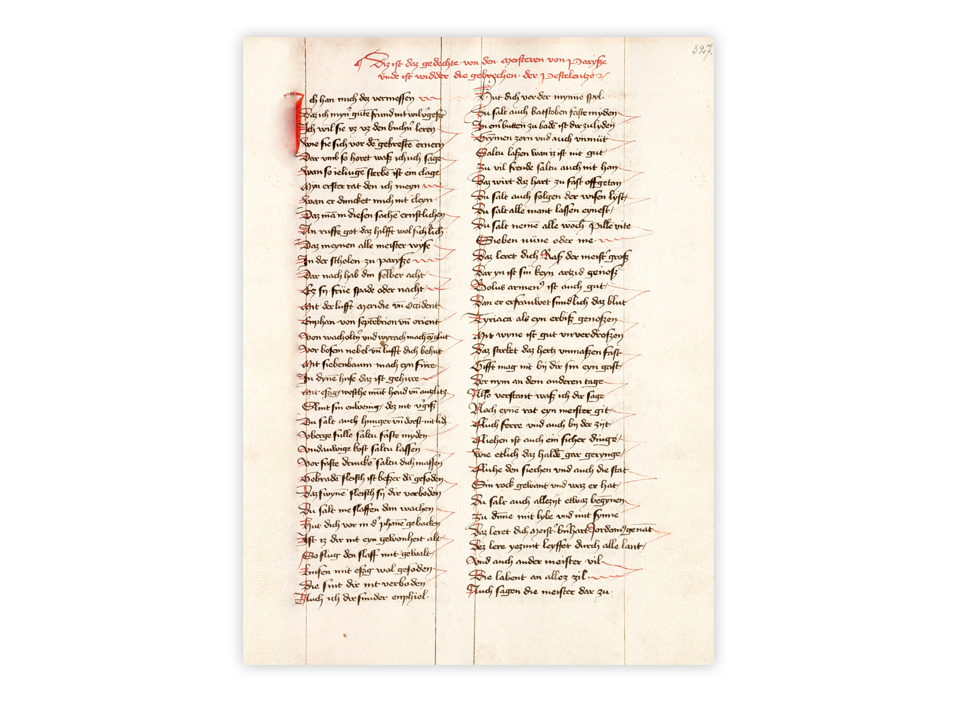 397
Diz ist daz gedechte von den meisteren von Paryße
vnde ist widder die gebrechen der Pestelentzo
Ich han mich des vermessen
Daz ich myn gutē frund nit wil vgeße
Ich wil sie vz vz den buchn leren
wie sie sich vor dē gebreste ernern
Dar vmb so horet waß ich uch sage
wan so ielinge sterbē ist ein clage
Myn erster rat den ich meyn
wan er duncket mich nit cleyn
Daz mā in diesen sachē ernstlichen
An ruffe got daz hilfft wol sichlich
Daz meynen alle meister wyse
In der scholen zu paryße
Dar nach hab din selber acht
Ez sy früe spade oder nacht
Mit der lufft meridie vn̄ Occident
Enphan von septēbrion vn̄ orient
von wacholtˀ vnd wyrach mach
Vor bosem nebel vn̄ lufft dich behut
Mit siebenbaum mach eyn fure
In dyme huse daz ist gehure
Mit eßig weschē mūt hend vn̄ anglitz
Stint sin enwenig dez nit vˀgiß
Du salt auch hunger vn̄ dorst nit lid
vberge fulle saltu faste myden
vndauwige kost saltu lassen
Vor faste drincke saltu dich massen
Gebrade fleisch ist beßer dā gesoden
Daz swyne fleisch sy dir verboden
Du salt me slaffen den wachen
Hut dich vor in dˀ phāne gebacken
Ist iz dir nit eyn gewonheit alt
So flug den slaff mit gewalt
linsen mit eßig wol gesoden
Die sint dir nit verboden
Auch ich dir sunder enphiel
Hut dich vor der mynne spil
Du salt auch batstoben faste myden
In eynˀ butten zu bade ist der zu lyden
Grymen zorn vnd auch vnmut
Saltu laßen wan iz ist nit gut
Zu vil freude saltu auch nit han
Daz wirt daz hart zu fast offgetan
Du salt auch folgen der wisen lyst
Du salt alle mant lassen eynest
Du salt neme alle woch pille vite
Sieben nūne oder me
Daz leret dich Raß der meistˀ groß
Dar yn ist sin keyn artzid genoß
Bolus armenˀ ist auch gut
Dan er erfrauwet sundlich daz blut
Tyriaca als eyn erbiß genoßen
Mit wyne ist gut vnverdroßen
Daz sterket daz hertz vnmaßen fast
Gifft mag nit by dir sin eyn gast
Der nym an dem anderen tage
Also verstant waß ich dir sage
Noch eyne rat eyn meister git
Fluch ferre vnd auch by der zyt
Fliehen ist auch ein sicher dinge
wie etlich daz halde gar gerynge
Fluhe den siechen vnd auch die stat
Sin rock gewant vnd waz er hat
Du salt auch allezyt etwaz begynen
Zu dūne mit lybe vnd mit synne
Daz leret dich meistˀ bernhart Jordom genāt
Dez lere yezunt leyffet durch alle lant
Vnd auch ander meister vil
Die labent an allez zil
Auch sagen die meister dar zu